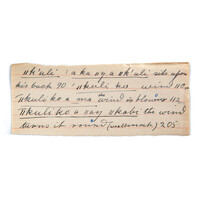 "k'uli ! aka ŋa "k'uli sits upon
his back 90 "kuli ko wind 110
"kuli ko a ma wind is blowing 112
"kuli ko a say /kabi the wind
turns it round () 205